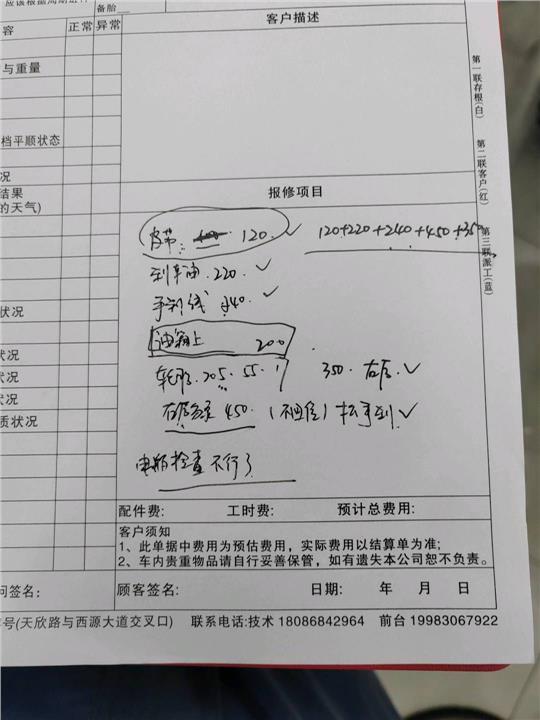 备胎
客户描述
容 正常 异常
与重量
档平顺状态
况
结果
的天气)
状况
状况
状况
状况
质状况
第一联存根(白) 第二联客户(红) 第三联派工(蓝)
报修项目
皮带: 120. ✓ 120+220+240+450+350
刹车油.220. ✓
手刹线 240. ✓
油箱上 200
轮胎.205.55.17 350. 右后.✓
右后 450. ✓
电瓶检查 不行了
配件费: 工时费: 预计总费用:
客户须知
1、此单据中费用为预估费用，实际费用以结算单为准;
2、车内贵重物品请自行妥善保管，如有遗失本公司恕不负责。
问签名: 顾客签名: 日期: 年 月 日
号(天欣路与西源大道交叉口) 联系电话:技术 18086842964 前台 19983067922